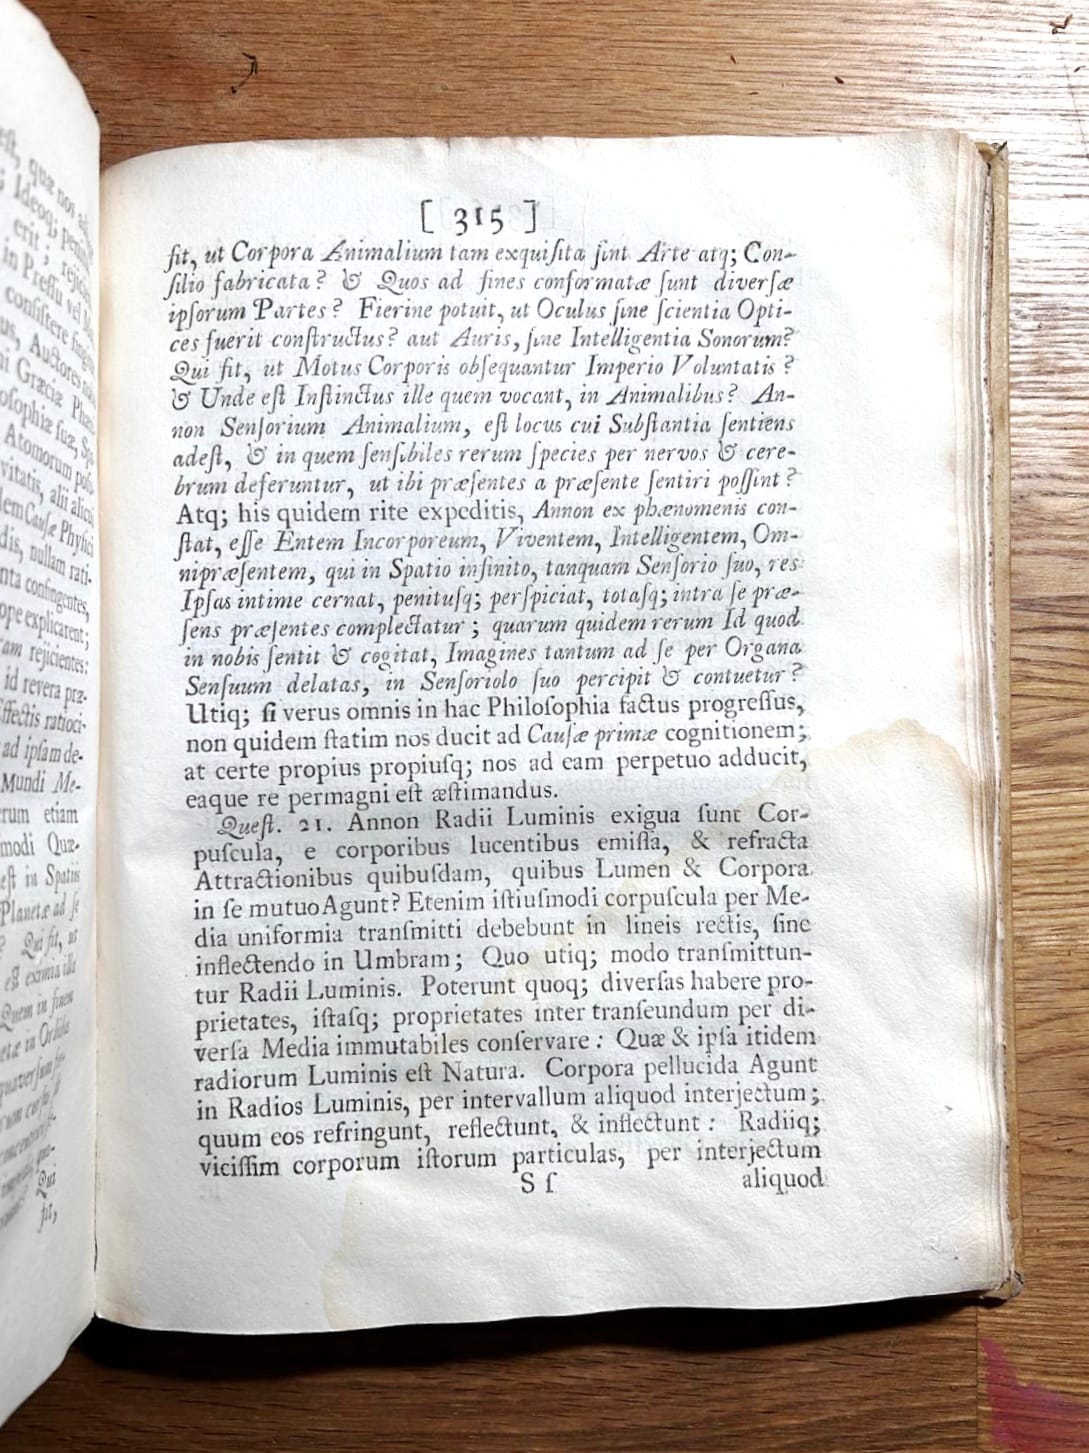 eſt, quæ nos ad
; Ideoq; penitus
erit; rejicien
in Preſſu vel Mo
conſiſtere fingun
us, Auctores nobis
i Græciæ Phæ
oſophiæ ſuæ, Spa
Atomorum poſu
vitatis, alii alicui
dem Cauſæ Phyſici
dis, nullam rati-
nta confingentes,
ope explicarent;
am rejicientes:
id revera præ-
ffectis ratioci-
ad ipſam de-
Mundi Me-
erum etiam
modi Quæ-
eſt in Spatiis
Planetæ ad ſe
? Qui fit, ut
eſt eximia illa
Quem in finem
etæ in Orbibus
Qui
fit,
[ 315 ]
fit, ut Corpora Animalium tam exquiſita ſint Arte atq; Con-
ſilio fabricata? & Quos ad fines conformatæ ſunt diverſæ
ipſorum Partes? Fierine potuit, ut Oculus ſine ſcientia Opti-
ces fuerit conſtructus? aut Auris, ſine Intelligentia Sonorum?
Qui fit, ut Motus Corporis obſequantur Imperio Voluntatis?
& Unde eſt Inſtinctus ille quem vocant, in Animalibus? An-
non Senſorium Animalium, eſt locus cui Subſtantia ſentiens
adeſt, & in quem ſenſibiles rerum ſpecies per nervos & cere-
brum deferuntur, ut ibi præſentes a præſente ſentiri poſſint?
Atq; his quidem rite expeditis, Annon ex phænomenis con-
ſtat, eſſe Entem Incorporeum, Viventem, Intelligentem, Om-
nipræſentem, qui in Spatio infinito, tanquam Senſorio ſuo, res
Ipſas intime cernat, penituſq; perſpiciat, totaſq; intra ſe præ-
ſens præſentes complectatur; quarum quidem rerum Id quod
in nobis ſentit & cogitat, Imagines tantum ad ſe per Organa
Senſuum delatas, in Senſoriolo ſuo percipit & contuetur?
Utiq; ſi verus omnis in hac Philoſophia factus progreſſus,
non quidem ſtatim nos ducit ad Cauſæ primæ cognitionem;
at certe propius propiuſq; nos ad eam perpetuo adducit,
eaque re permagni eſt æſtimandus.
Queſt. 21. Annon Radii Luminis exigua ſunt Cor-
puſcula, e corporibus lucentibus emiſſa, & refracta
Attractionibus quibuſdam, quibus Lumen & Corpora
in ſe mutuo Agunt? Etenim iſtiuſmodi corpuſcula per Me-
dia uniformia tranſmitti debebunt in lineis rectis, ſine
inflectendo in Umbram; Quo utiq; modo tranſmittun-
tur Radii Luminis. Poterunt quoq; diverſas habere pro-
prietates, iſtaſq; proprietates inter tranſeundum per di-
verſa Media immutabiles conſervare: Quæ & ipſa itidem
radiorum Luminis eſt Natura. Corpora pellucida Agunt
in Radios Luminis, per intervallum aliquod interjectum;
quum eos refringunt, reflectunt, & inflectunt: Radiiq;
viciſſim corporum iſtorum particulas, per interjectum
S ſ aliquod